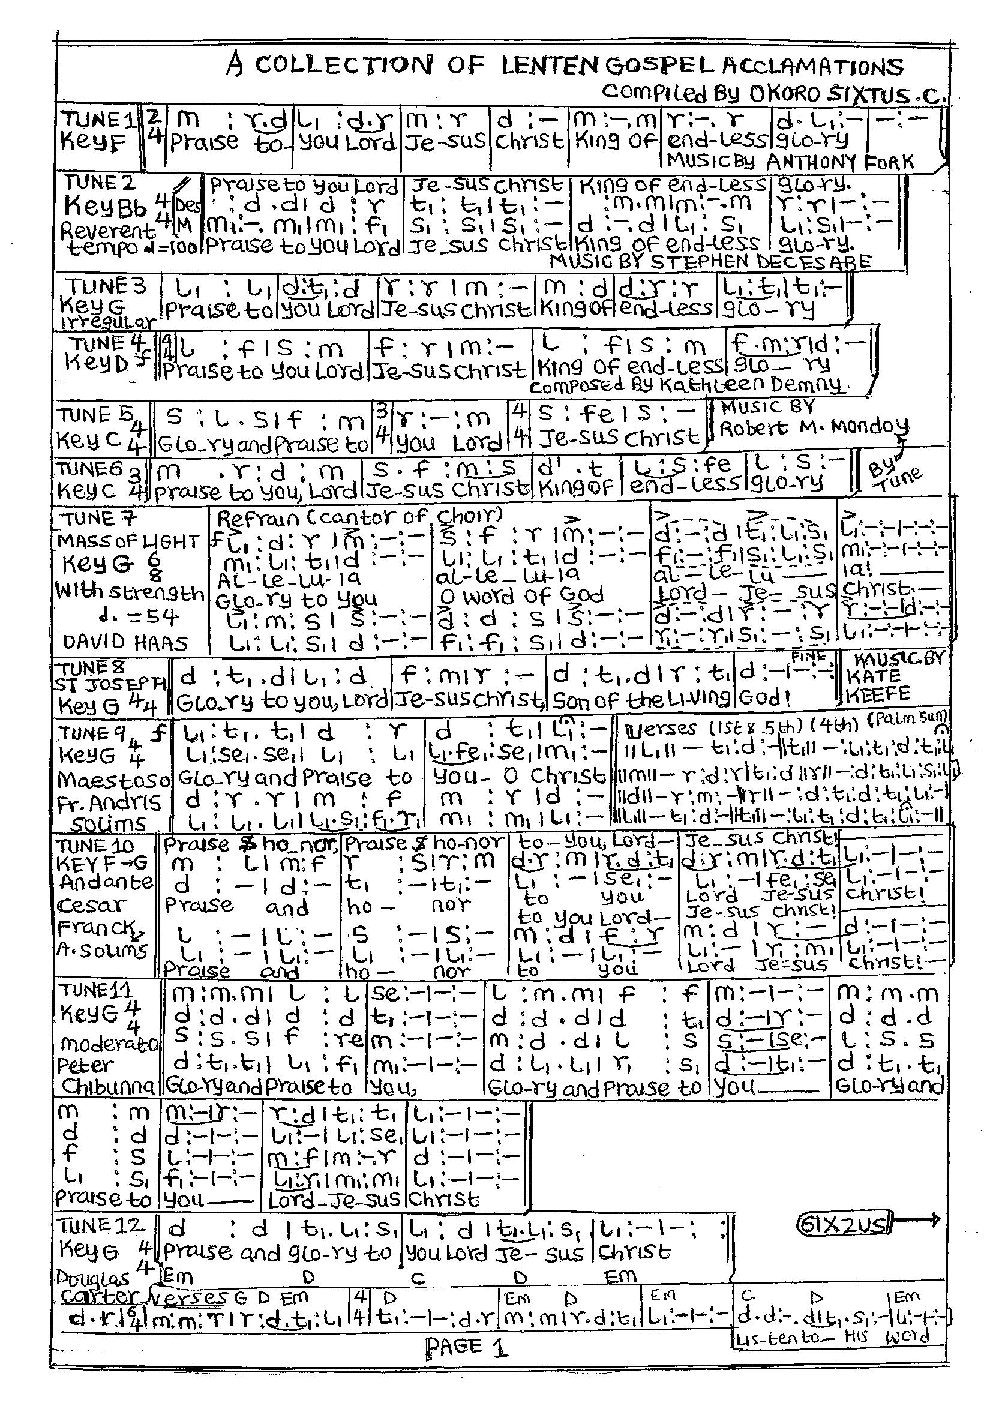 A COLLECTION OF LENTEN GOSPEL ACCLAMATIONS
Compiled By OKORO SIXTUS.C.
TUNE 1 2 m : r.d l₁ : d.r m : r d : – m : –.m r : –.r d.l₁ : – – : –
Key F 4 Praise to you Lord Je-sus Christ King of end-less glo-ry
MUSIC BY ANTHONY FORK
TUNE 2 Praise to you Lord Je-sus Christ King of end-less glo-ry.
Key Bb 4 Des : d.d|d : r t₁ : t₁|t₁ : – : m.m|m : –.m r : r|– : –
Reverent 4 M m₁ : –.m₁|m₁ : f₁ s₁ : s₁|s₁ : – d : –.d|l₁ : s₁ l₁ : s₁|– : –
tempo d=100 Praise to you Lord Je-sus Christ King of end-less glo-ry.
MUSIC BY STEPHEN DECESARE
TUNE 3 l₁ : l₁ d : t₁ : d r : r|m : – m : d d : r : r l₁ : t₁|t₁ : –
Key G Praise to you Lord Je-sus Christ King of end-less glo-ry
irregular
TUNE 4 4 l : f|s : m f : r|m : – l : f|s : m f.m : r|d : –
Key D f 4 Praise to you Lord Je-sus Christ King of end-less glo-ry
Composed By Kathleen Demny.
TUNE 5 4 s : l.s|f : m 3 r : – : m 4 s : fe|s : – MUSIC BY
Key C 4 Glo-ry and Praise to 4 you Lord 4 Je-sus Christ Robert M. Mondoy
TUNE 6 3 m .r : d : m s.f : m : s d'.t l : s : fe l : s : – By
Key C 4 Praise to you, Lord Je-sus Christ King of end-less glo-ry Tune
TUNE 7 Refrain (cantor of choir)
MASS OF LIGHT f l₁ : d : r|m : – : – s : f : r|m : – : – d : – : d|t₁ : l₁ : s₁ l₁ : – : –|– : – : –
Key G 6 m₁ : l₁ : t₁|d l₁ : l₁ : t₁|d : – : – f₁ : – : f₁|s₁ : l₁ : s₁ m₁ : – : –|– : – : –
8 AL-le-lu-ia al-le-lu-ia al-le-lu ia!
With strength Glo-ry to you O word of God Lord Je-sus Christ
d. = 54 l₁ : m : s|s : – : – d : d : s|s : – : – d : – : d|r : – : r r : – : –|d : – : –
DAVID HAAS l₁ : l₁ : s₁|d : – : – f₁ : f₁ : s₁|d : – : – r₁ : – : r₁|s₁ : – : s₁ l₁ : – : –|– : – : –
TUNE 8 d : t₁.d|l₁ : d f : m|r : – d : t₁.d|r : t₁ d : –|– : – FINE MUSIC BY
ST JOSEPH KATE
Key G 4 4 Glo-ry to you, Lord Je-sus Christ, Son of the Living God! KEEFE
TUNE 9 f l₁ : t₁.t₁|d : r d : t₁|l₁ : – Verses (1st & 5th) (4th) (Palm Sun)
Key G 4 l₁ : se₁.se₁|l₁ : l₁ l₁.fe₁ : se₁|m₁ : –
Maestoso 4 Glo-ry and Praise to you- O Christ
Fr. Andris d : r.r|m : f m : r|d : –
Solims l₁ : l₁.l₁|l₁.s₁ : f₁.r₁ m₁ : m₁|l₁ : –
TUNE 10 Praise $ ho-nor, Praise $ ho-nor to-you, Lord- Je-sus Christ!
KEY F-G m : l|m : f r : s|r : m d.r : m|r.d : t₁ d.r : m|r.d : t₁ l₁ : –|– : –
Andante d : –|d : – t₁ : –|t₁ : – l₁ : –|se₁ : – l₁ : –|fe₁ : se₁ l₁ : –|– : –
Cesar Praise and ho- nor to you Lord Je-sus Christ!
Franck, to you Lord- Je-sus Christ!
l : –|l : – s : –|s : – m : d|f : r m : d|r : – d : –|– : –
A. Solims l₁ : –|l₁ : – l₁ : –|– : – l₁ : –|– : – l₁ : –|r₁ : m₁ l₁ : –|– : –
Praise and ho- nor to you Lord Je-sus Christ!-
TUNE 11 m : m.m|l : l se : –|– : – l : m.m|f : f m : –|– : – m : m.m
Key G 4 d : d.d|d : d t₁ : –|– : – d : d.d|d : t₁ d : –|r : – d : d.d
4
moderato s : s.s|f : re m : –|– : – m : d.d|l : s s : –|se : – l : s.s
Peter d : t₁.t₁|l₁ : f₁ m₁ : –|– : – d : l₁.l₁|r₁ : s₁ d : –|t₁ : – d : t₁.t₁
Chibunna Glo-ry and Praise to you, Glo-ry and Praise to you Glo-ry and
m : m m : –|r : – r : d|t₁ : t₁ l₁ : –|– : –
d : d d : –|– : – l₁ : –|l₁ : se₁ l₁ : –|– : –
f : s l : –|– : – m : f|m : –.r d : –|– : –
l₁ : s₁ f₁ : –|– : – l₁ : r₁|m₁ : m₁ l₁ : –|– : –
Praise to you Lord-Je-sus Christ
TUNE 12 d : d|t₁.l₁ : s₁ l₁ : d|t₁.l₁ : s₁ l₁ : –|– : : SIX2US
Key G 4 Praise and glo-ry to you Lord Je-sus Christ
Douglas 4 Em D C D Em
Carter Verses G D Em 4 D Em D Em C D Em
d.r|6 4 m : m : r|r : d.t₁ : l₁ 4 t₁ : –|– : d.r m : m|r.d : t₁ l₁ : –|– : – d.d : –.d|t₁.s₁ : – l₁ : –|– : –
Lis-ten to- His word
PAGE 1